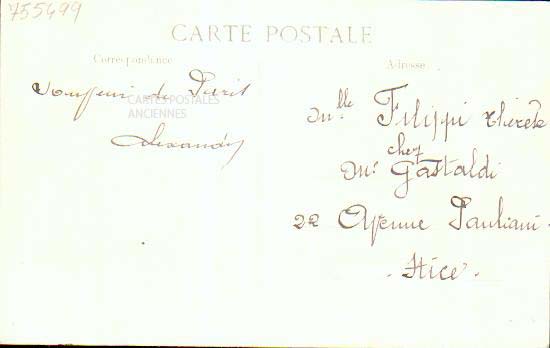 755499
CARTE POSTALE
Correspondance
Adresse
de Paris
CARTES POSTALES
ANCIENNES
Mlle Filippi Thérèse
chez
Mr Gastaldi
22 Avenue Pauliani
- Nice -